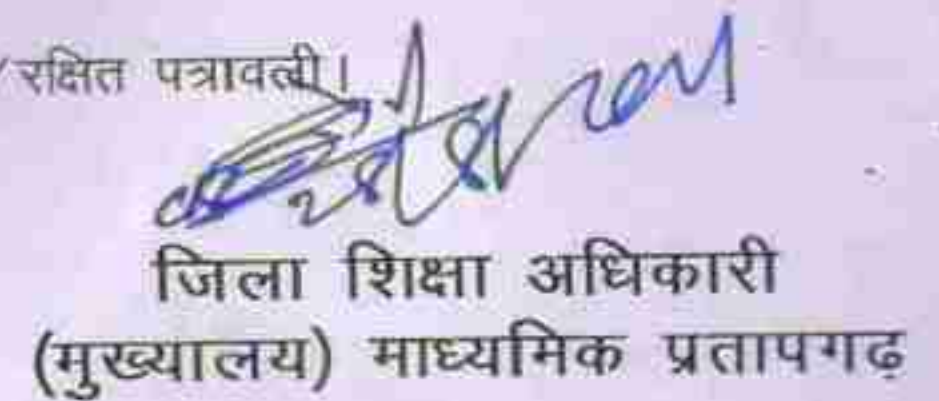 /रक्षित पत्रावली।
जिला शिक्षा अधिकारी
(मुख्यालय) माध्यमिक प्रतापगढ़